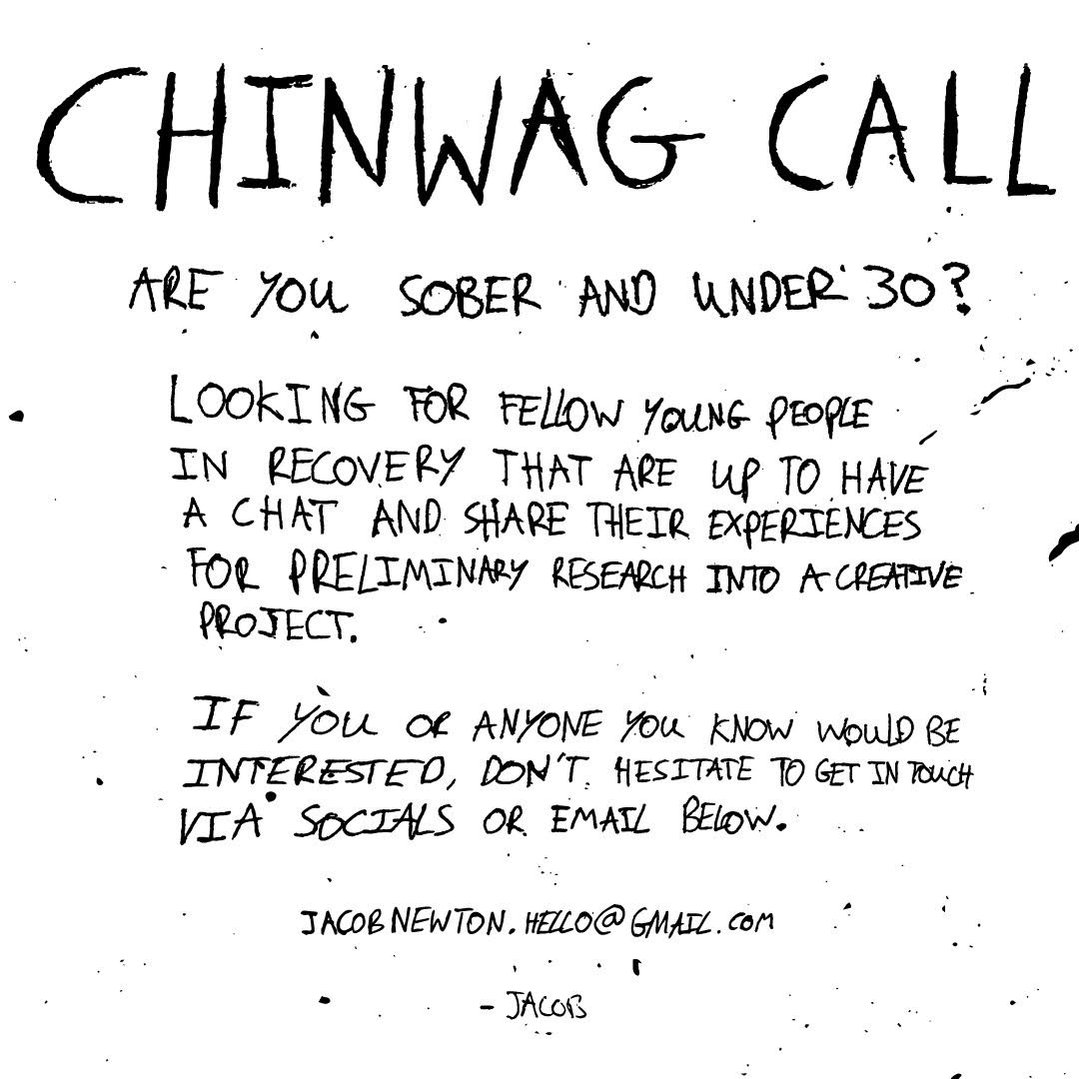 CHINWAG CALL
ARE YOU SOBER AND UNDER 30?
LOOKING FOR FELLOW YOUNG PEOPLE
IN RECOVERY THAT ARE UP TO HAVE
A CHAT AND SHARE THEIR EXPERIENCES
FOR PRELIMINARY RESEARCH INTO A CREATIVE
PROJECT.
IF YOU OR ANYONE YOU KNOW WOULD BE
INTERESTED, DON'T HESITATE TO GET IN TOUCH
VIA SOCIALS OR EMAIL BELOW.
JACOBNEWTON.HELLO@GMAIL.COM
- JACOB